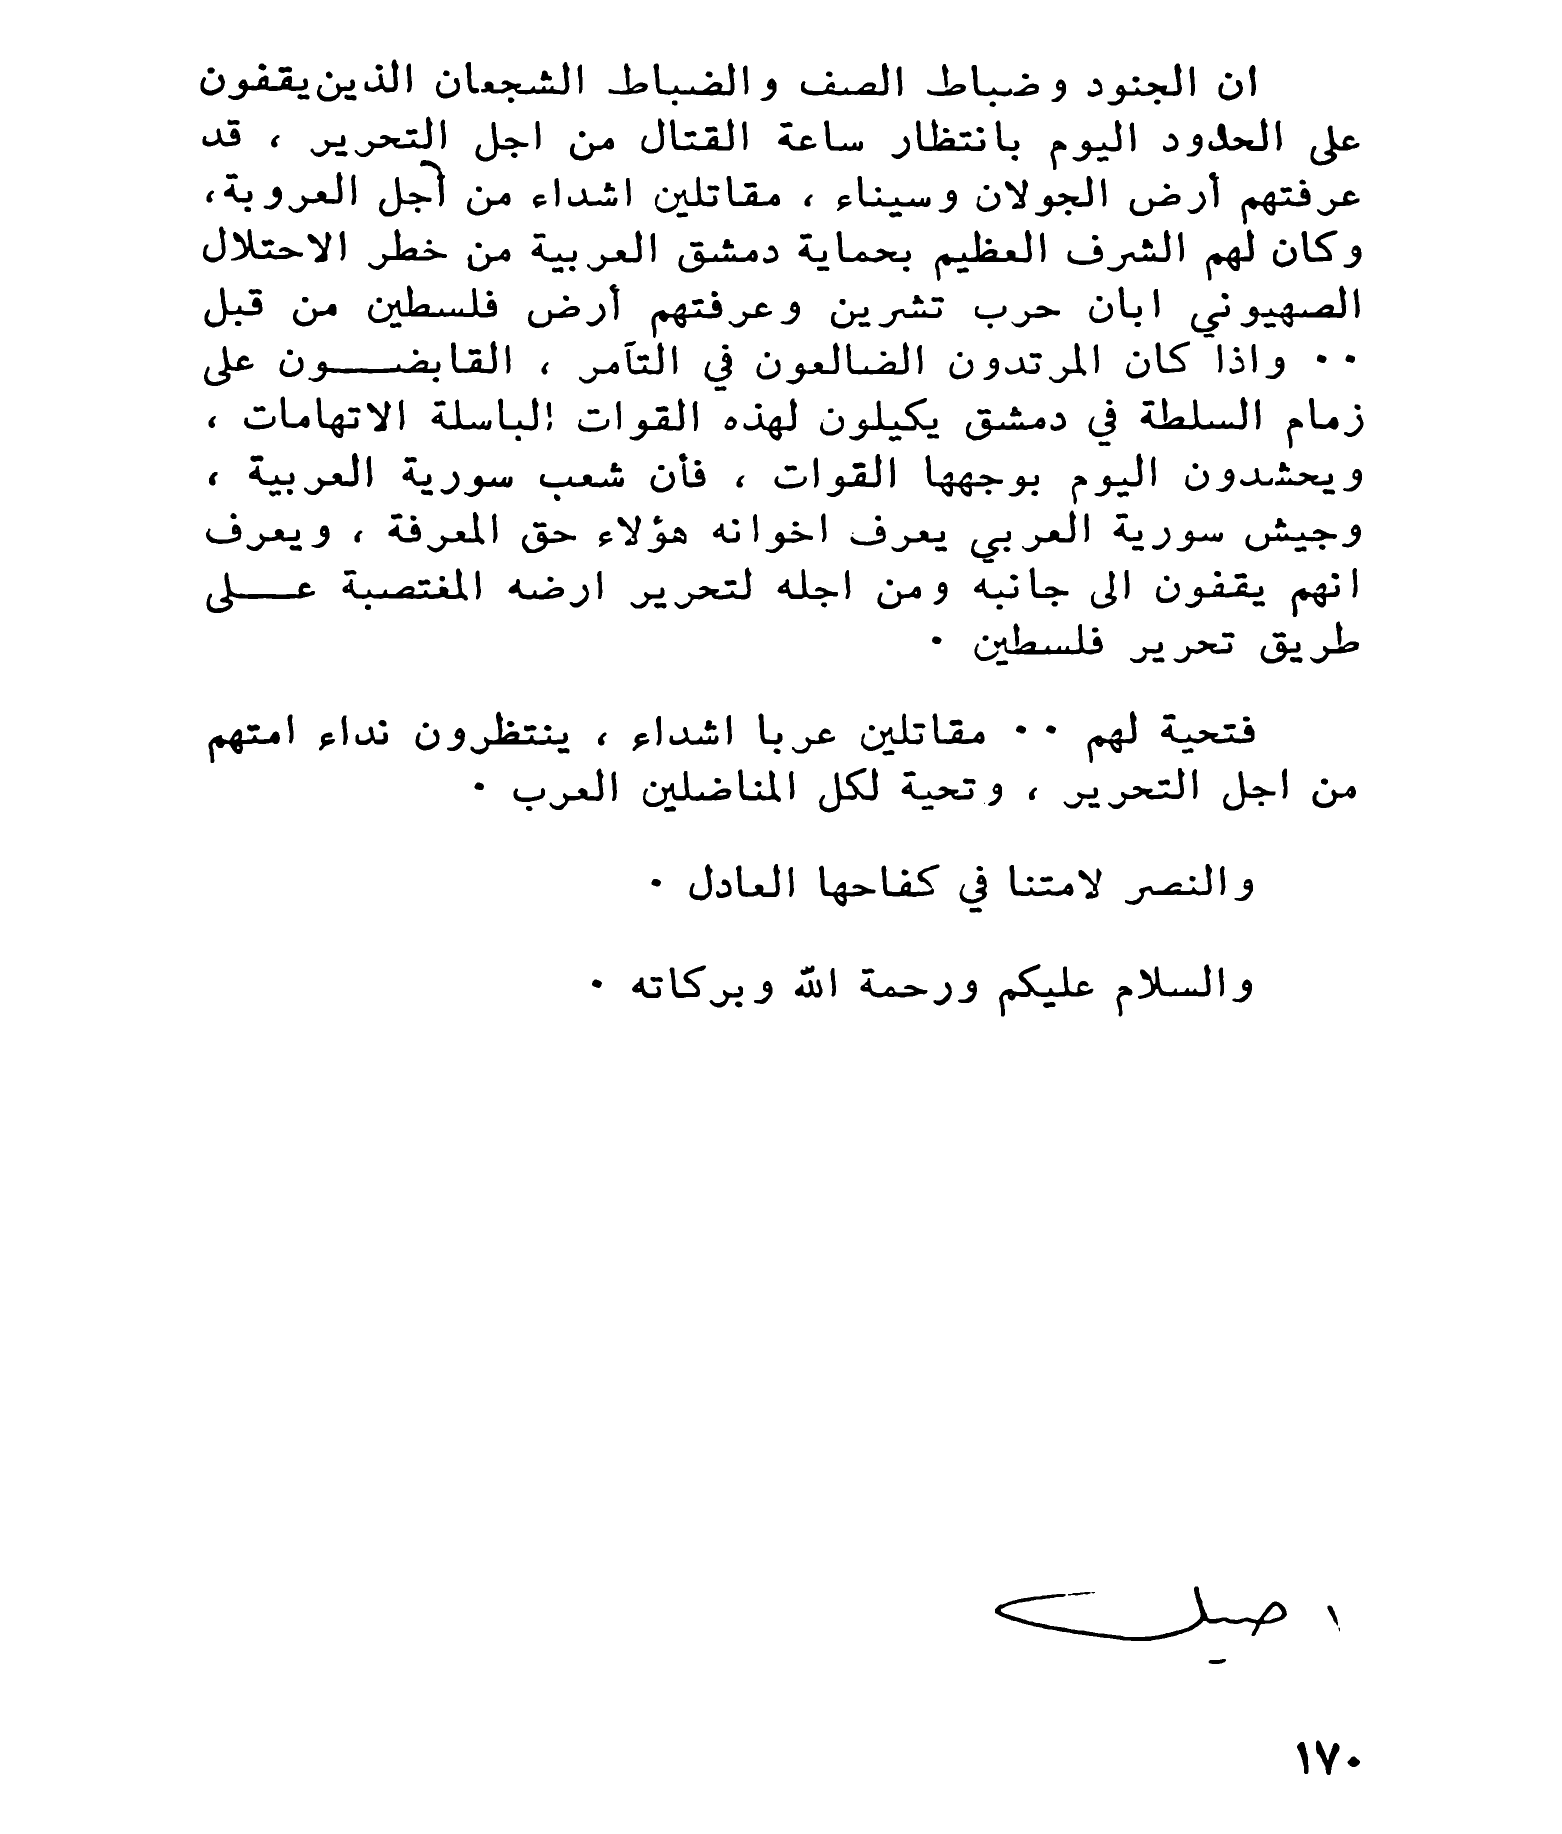 ان الجنود وضباط الصف والضباط الشجعان الذين يقفون
على الحدود اليوم بانتظار ساعة القتال من اجل التحرير ، قد
عرفتهم أرض الجولان وسيناء ، مقاتلين اشداء من أجل العروبة،
وكان لهم الشرف العظيم بحماية دمشق العربية من خطر الاحتلال
الصهيوني ابان حرب تشرين وعرفتهم أرض فلسطين من قبل
٠٠ واذا كان المرتدون الضالعون في التآمر ، القابضـــون على
زمام السلطة في دمشق يكيلون لهذه القوات الباسلة الاتهامات ،
ويحشدون اليوم بوجهها القوات ، فأن شعب سورية العربية ،
وجيش سورية العربي يعرف اخوانه هؤلاء حق المعرفة ، ويعرف
انهم يقفون الى جانبه ومن اجله لتحرير ارضه المغتصبة عـــلى
طريق تحرير فلسطين ٠
فتحية لهم ٠٠ مقاتلين عربا اشداء ، ينتظرون نداء امتهم
من اجل التحرير ، وتحية لكل المناضلين العرب ٠
والنصر لامتنا في كفاحها العادل ٠
والسلام عليكم ورحمة الله وبركاته ٠
١٧٠